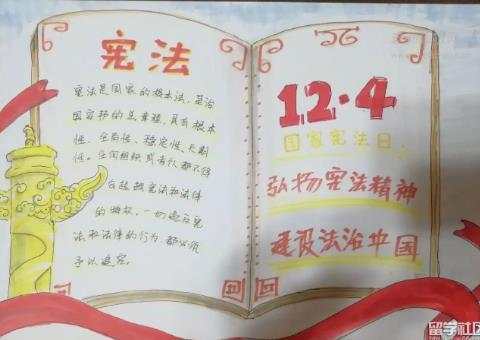 宪法
宪法是国家的根本法，是治
国安邦的总章程，具有根本
性、全局性、稳定性、长期
性。任何组织或者个人都不得
有超越宪法和法律
的特权，一切违反宪
法和法律的行为，都必须
予以追究。
12·4
国家宪法日
弘扬宪法精神
建设法治中国
留学社区